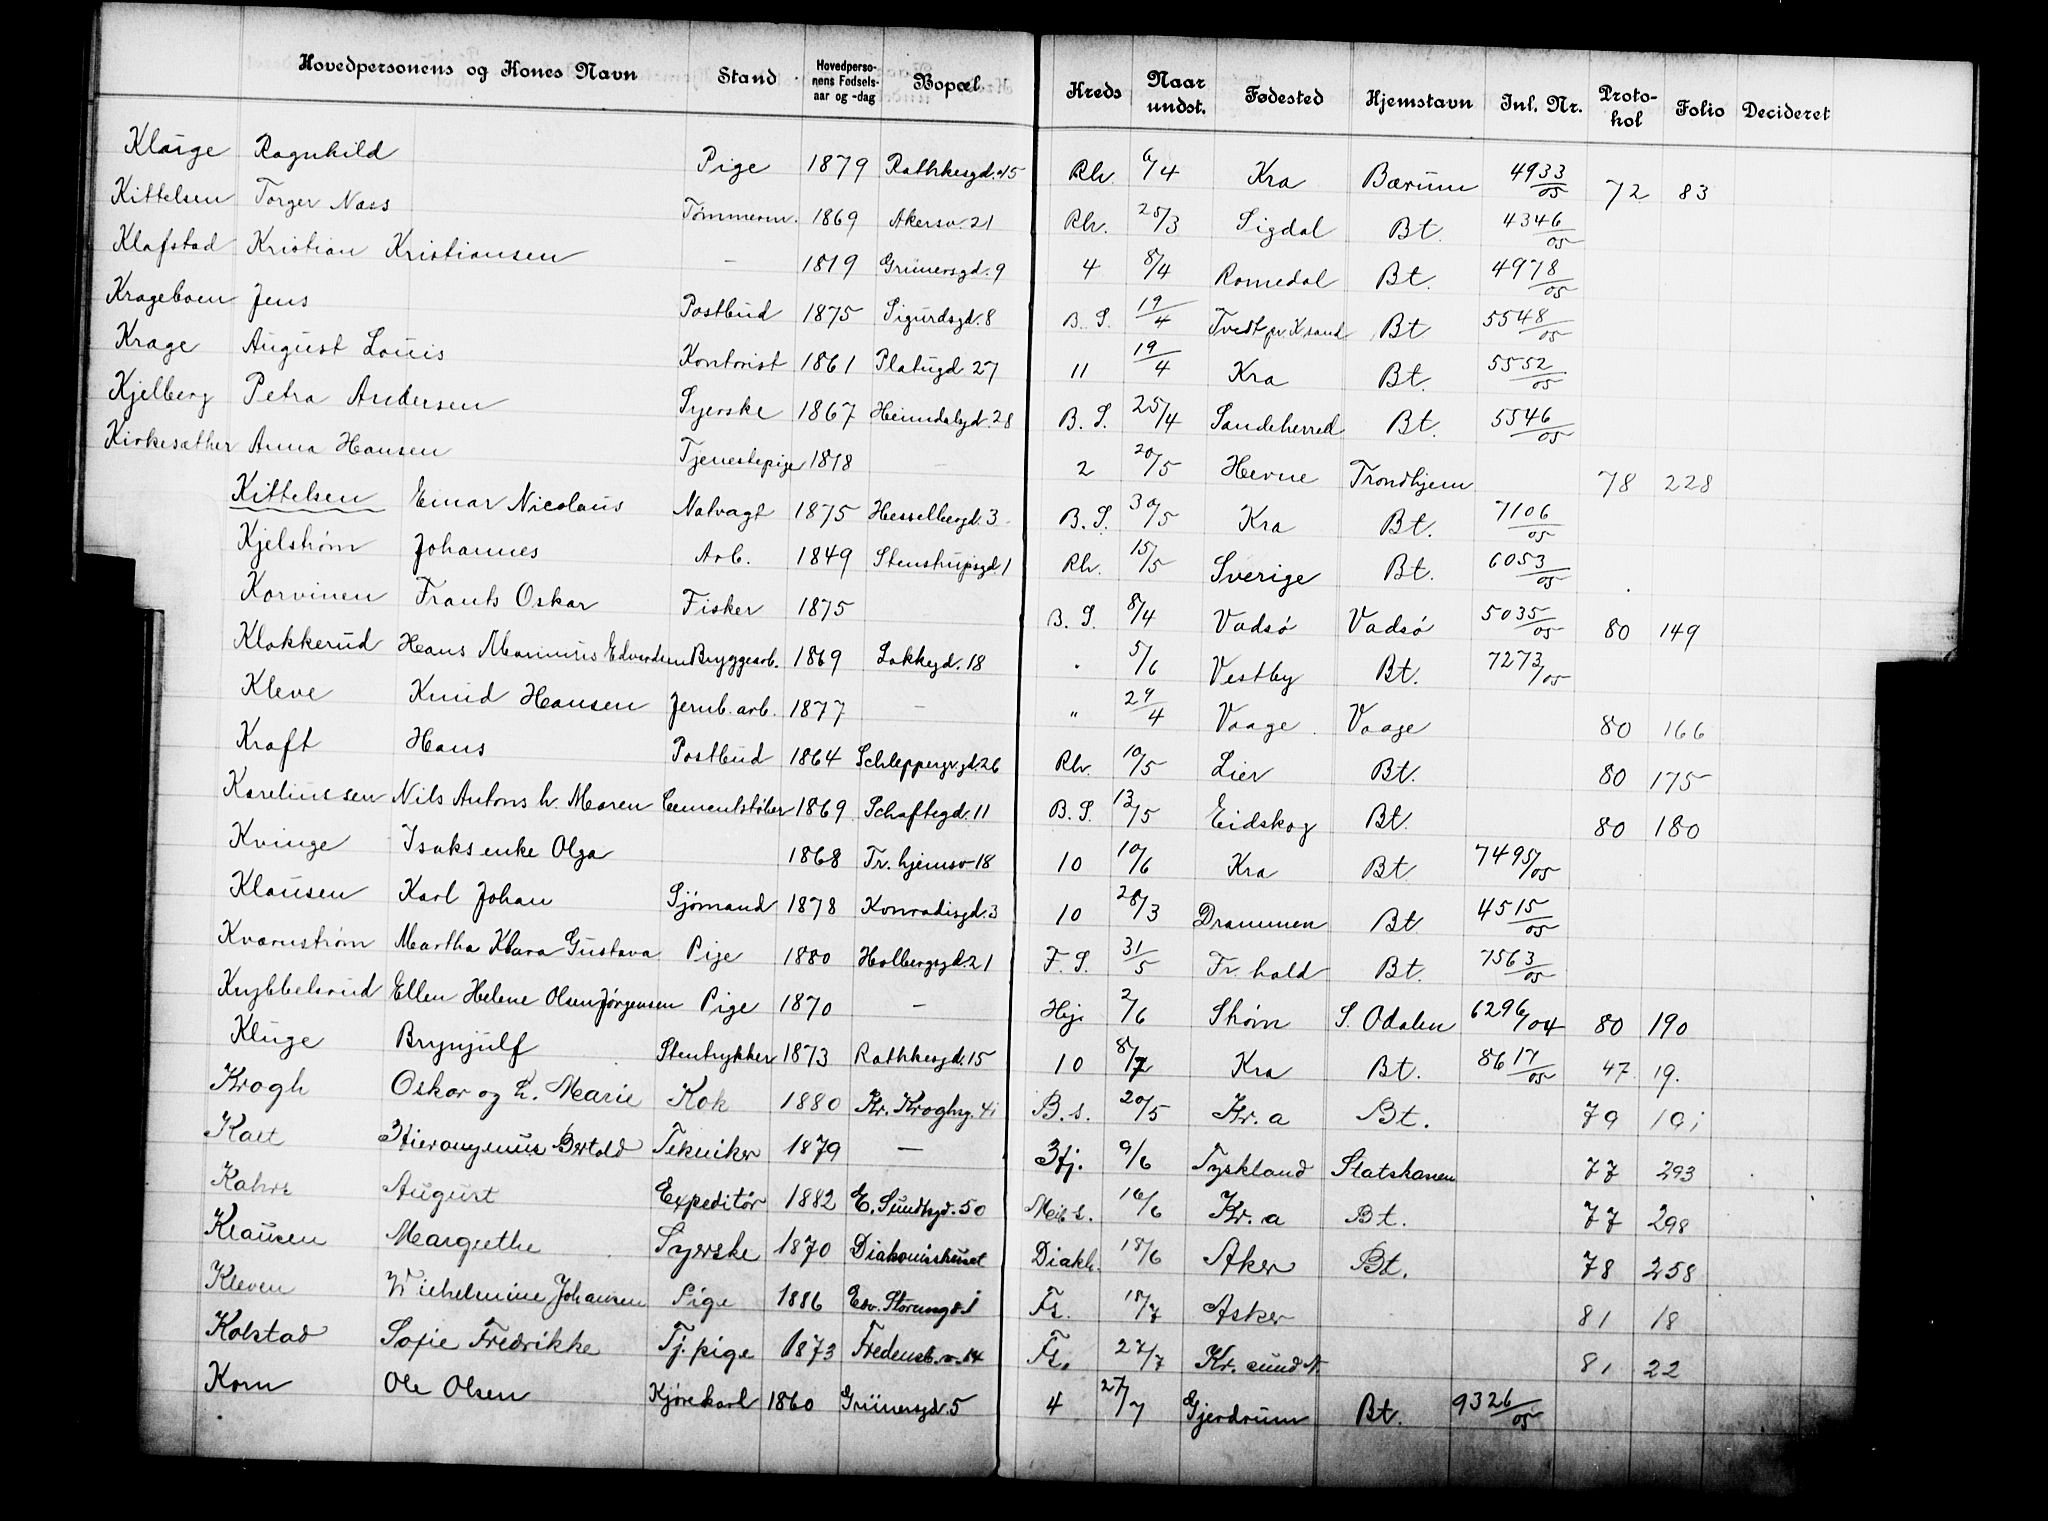 Hovedpersonens og Kones Navn Stand Hovedpersonens Fødselsaar og -dag Bopæl Kreds Naar undst. Fødested Hjemstavn Jnl. Nr. Protokol Folio Decideret
Kluge Ragnhild Pige 1879 Rathkesgd. 15 Rh. 6/4 Kra Bærum 4933/05 72 83
Kittelsen Torger Næss Tømmerm. 1869 Akersv. 21 Rh. 25/3 Sigdal Bt. 4346/05
Klafstad Kristian Kristiansen — 1819 Grünersgd. 9 4 8/4 Romedal Bt. 4978/05
Krageboen Jens Postbud 1875 Sigurdsgd. 8 B. S. 19/4 Tvedt pr. Ksand Bt 5548/05
Krage August Louis Kontorist 1861 Platugd 27 11 19/4 Kra Bt. 5552/05
Kjelberg Petra Andersen Syerske 1867 Heimdalsgd. 28 B. S. 25/4 Sandeherred Bt. 5546/05
Kirkesæther Anna Hansen Tjenestepige 1878 — 2 20/5 Hevne Trondhjem 78 228
Kittelsen Einar Nicolaus Natvagt 1875 Hesselbergd. 3 B. S. 30/5 Kra Bt. 7106/05
Kjelstrøm Johannes Arb. 1849 Stenstrupsgd. 1 Rh. 15/5 Sverige Bt. 6053/05
Karvinen Frants Oskar Fisker 1875 B. S. 8/4 Vadsø Vadsø 5035/05 80 149
Klokkerud Hans Marinius Edvardsen Bryggearb. 1869 Lakkegd. 18 " 5/6 Vestby Bt. 7273/05
Kleve Knud Hansen Jernb. arb. 1877 — " 24/4 Vaage Vaage 80 166
Kraft Hans Postbud 1864 Schleppegr.gd. 26 Rh. 10/5 Lier Bt. 80 175
Kareliussen Nils Antons h. Maren Cementstøber 1869 Schaftegd. 11 B. S. 13/5 Eidskog Bt. 80 180
Kvinge Isaks enke Olga 1868 Tr. hjemsv 18 10 10/6 Kra Bt. 7495/05
Klausen Karl Johan Sjømand 1878 Konradisgd. 3 10 28/3 Drammen Bt. 4515/05
Kvarnstrøm Martha Klara Gustava Pige 1880 Holbergsgd. 21 F. S. 31/5 Fr. hald Bt. 7563/05
Knybbelsrud Ellen Helene Olsen Jørgensen Pige 1870 — Hj. 2/6 Strøm S. Odalen 6296/04 80 190
Kluge Brynjulf Stentrykker 1873 Rathkesgd. 15 10 8/7 Kra Bt. 8617/05 47 19.
Krogh Oskar og h. Marie Kok 1880 Kr. Kroghsg. 41 B. s. 20/5 Kr. a Bt. 79 101
Kast Hieronymus Bertold Tekniker 1879 — Hj. 9/6 Tyskland Statskassen 77 293
Kahrs August Expeditør 1882 E. Sundtsgd. 50 Meis. 16/6 Kr. a Bt. 77 298
Klausen Margrethe Syerske 1870 Diakonishuset Diakh. 18/6 Aker Bt. 78 258
Kleven Wilhelmine Johansen Pige 1886 Edv. Stormsg. 1 Fs. 18/7 Asker 81 18
Kolstad Sofie Fredrikke Tj. pige 1873 Fredensb. v. 14 Fs. 27/7 Kr. sund N. 81 22
Korn Ole Olsen Kjørekarl 1860 Grünersgd. 5 4 27/7 Gjerdrum Bt. 9326/05